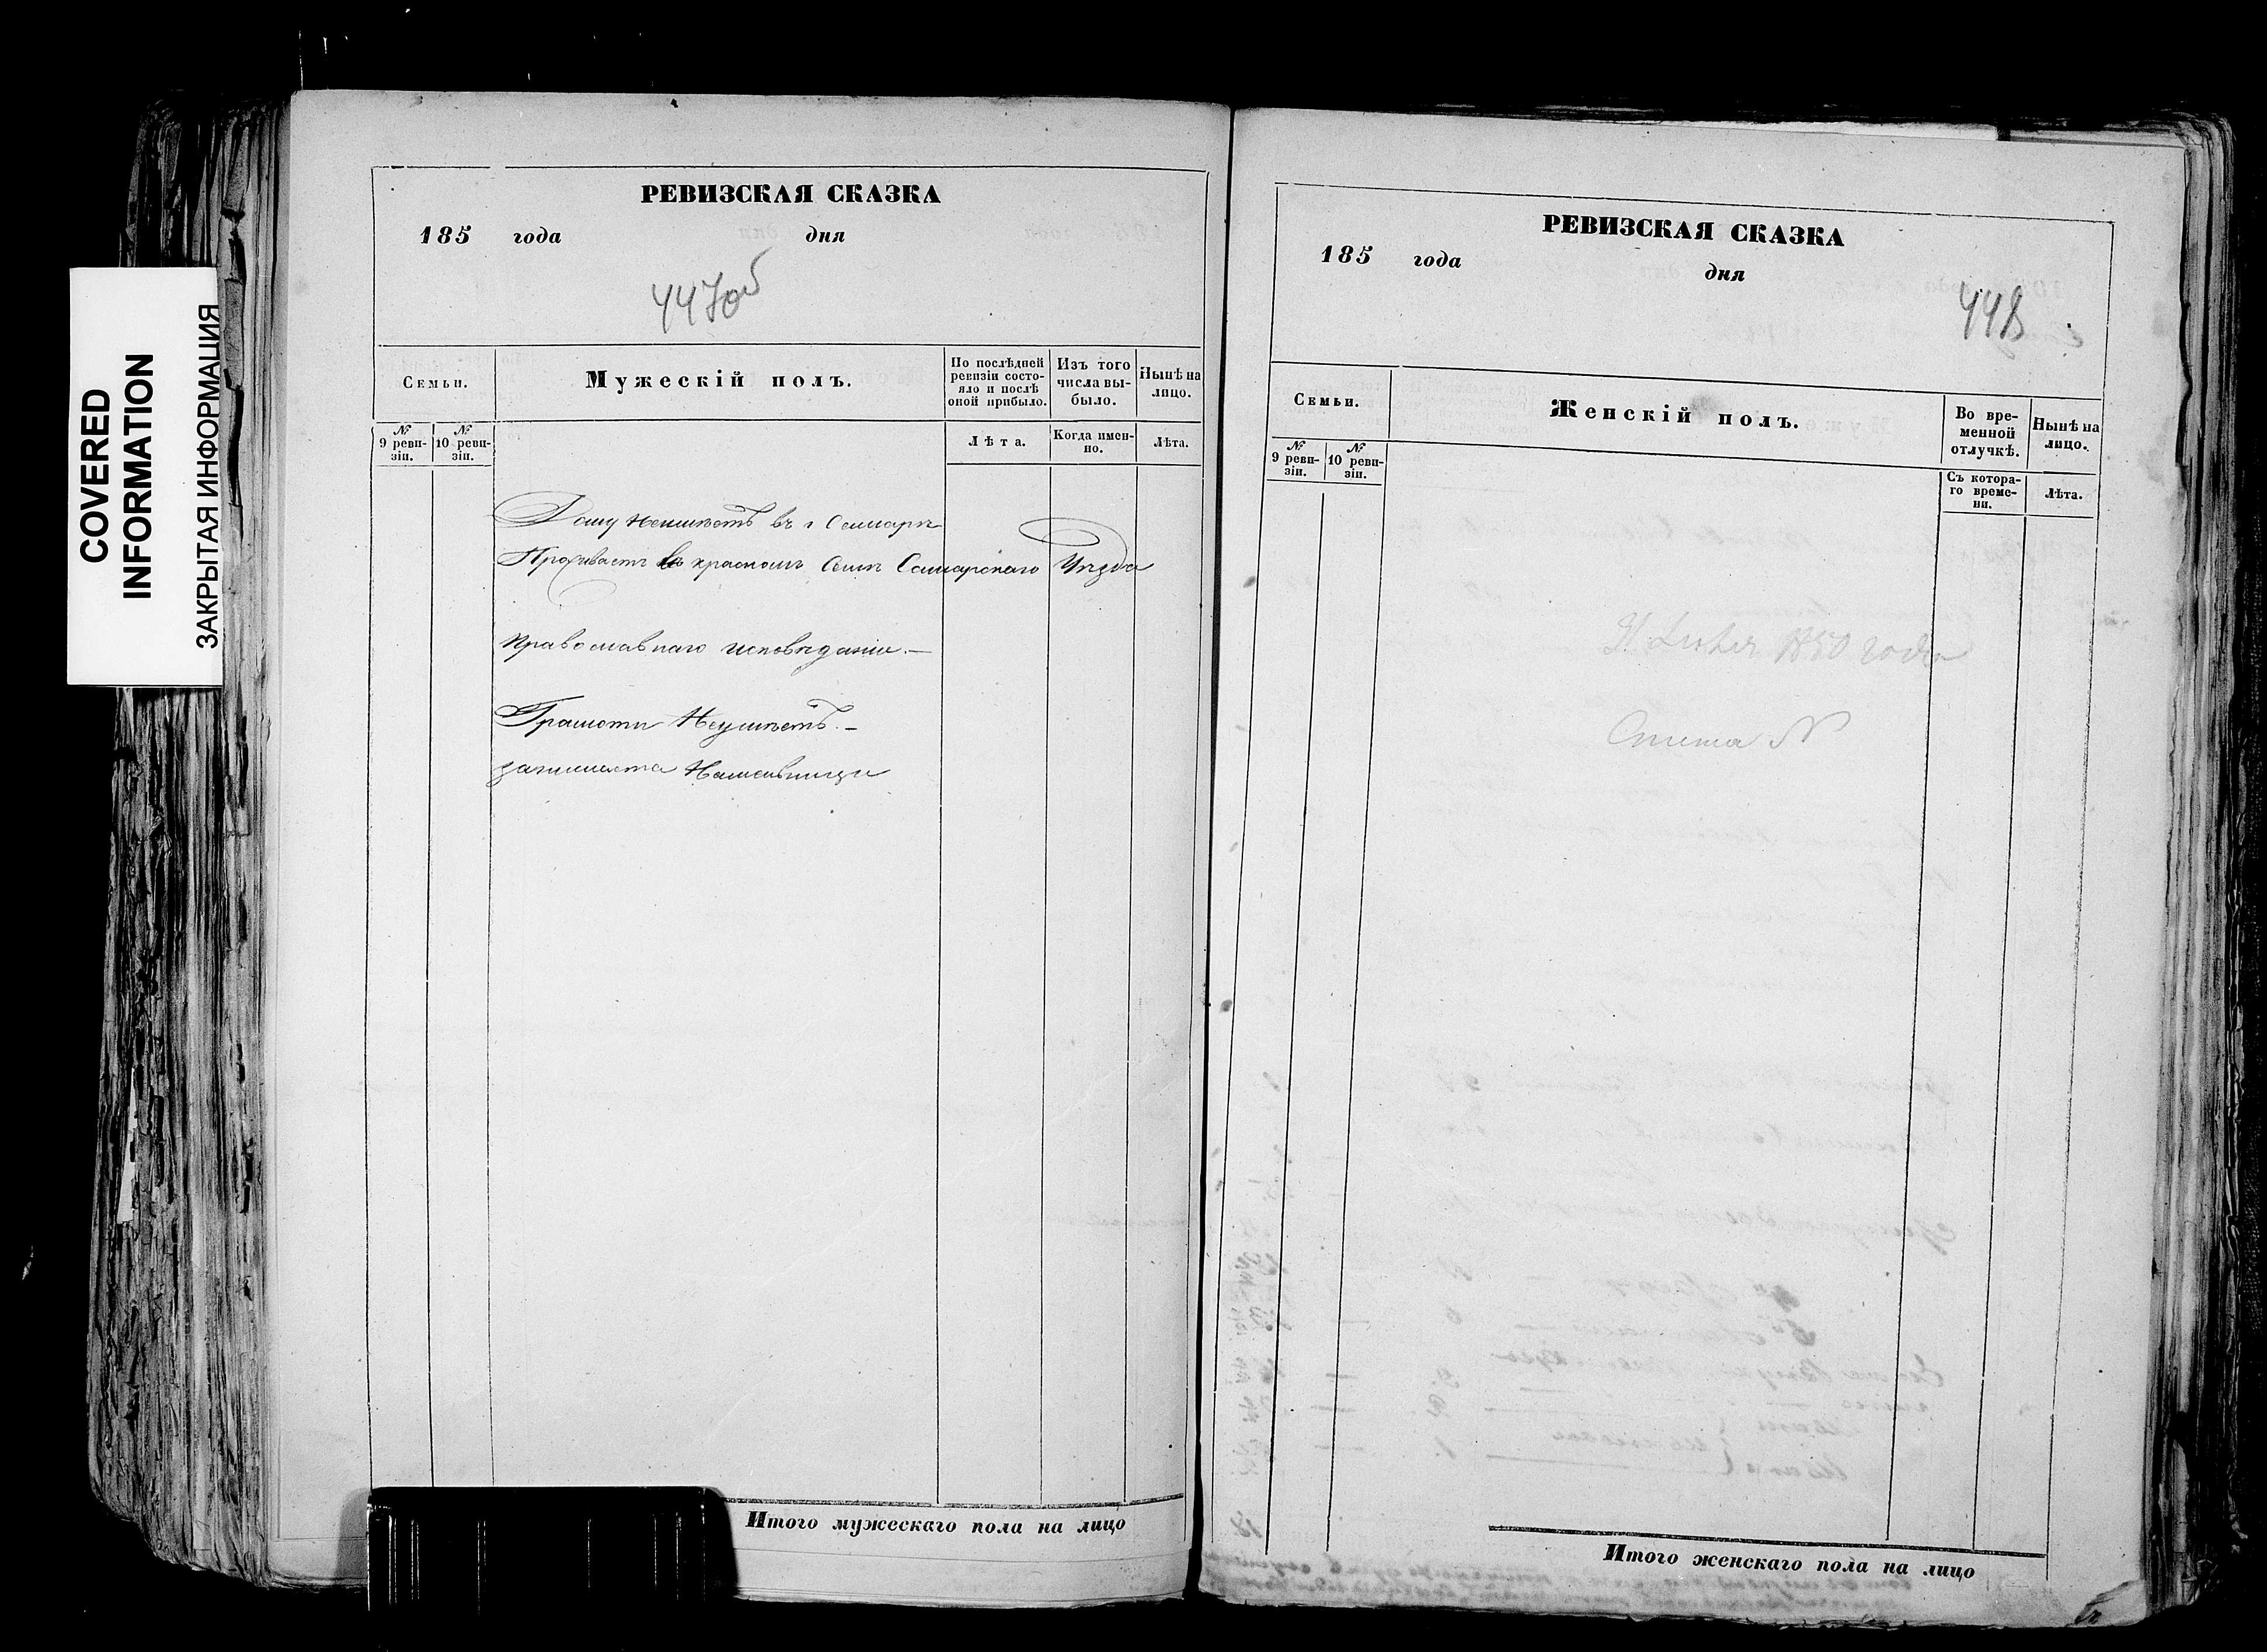 COVERED
INFORMATION
ЗАКРЫТАЯ ИНФОРМАЦИЯ
РЕВИЗСКАЯ СКАЗКА
185 года дня
447об
Семьи.
Мужескій полъ.
По послѣдней ревизіи состояло и послѣ оной прибыло.
Изъ того числа выбыло.
Нынѣ на лицо.
№ 9 ревизіи.
№ 10 ревизіи.
Лѣта.
Когда именно.
Лѣта.
Дому неимѣетъ въ г Самарѣ
Проживаетъ въ красномъ Селѣ Самарскаго Уѣзда
Православнаго исповѣданія.—
Грамоти Неумѣетъ.—
Итого мужескаго пола на лицо
РЕВИЗСКАЯ СКАЗКА
185 года дня
448
Семьи.
Женскій полъ.
Во временной отлучкѣ.
Нынѣ на лицо.
№ 9 ревизіи.
№ 10 ревизіи.
Съ котораго времени.
Лѣта.
1850 года
Итого женскаго пола на лицо